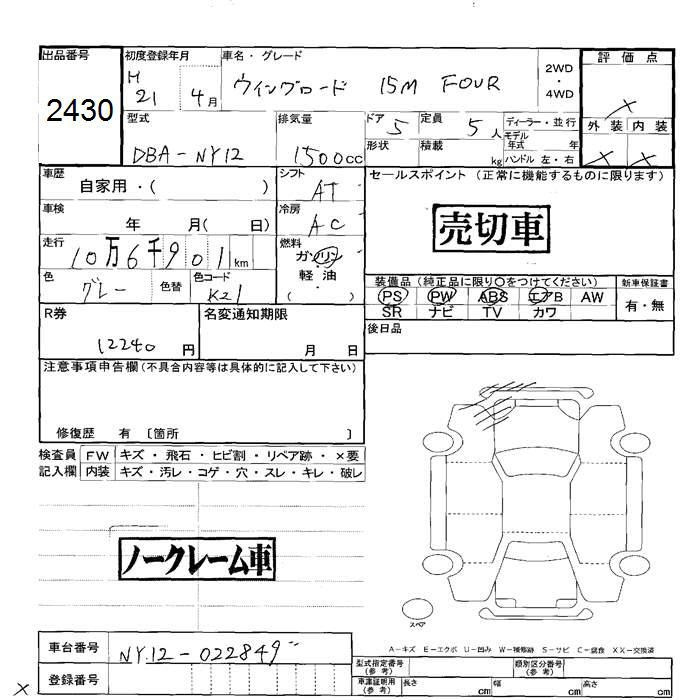 出品番号
2430
初度登録年月
H 21 4月
車名・グレード
ウイングロード 15M FOUR
2WD・4WD
評価点
×
外装 内装
× ×
型式
DBA-NY12
排気量
1500cc
ドア 5
形状
定員 5人
積載 kg
ディーラー・並行
モデル年式 年
ハンドル 左・右
車歴
自家用・( )
シフト AT
車検
年 月( 日)
冷房 AC
走行
10万6千901km
燃料
ガソリン・軽油・( )
色
グレー
色替
色コード
K21
セールスポイント(正常に機能するものに限ります)
売切車
装備品(純正品に限り○をつけてください)
PS PW ABS エアB AW
SR ナビ TV カワ
新車保証書
有・無
後日品
R券
12240円
名変通知期限
月 日
注意事項申告欄(不具合内容等は具体的に記入して下さい)
修復歴 有 〔箇所 〕
検査員記入欄
FW キズ・飛石・ヒビ割・リペア跡・×要
内装 キズ・汚レ・コゲ・穴・スレ・キレ・破レ
ノークレーム車
スペア
A-キズ E-エクボ U-凹み W-補修跡 S-サビ C-腐食 XX-交換済
車台番号
NY12-022849
登録番号
×
型式指定番号(参考)
類別区分番号(参考)
車庫証明用(参考)
長さ cm
幅 cm
高さ cm